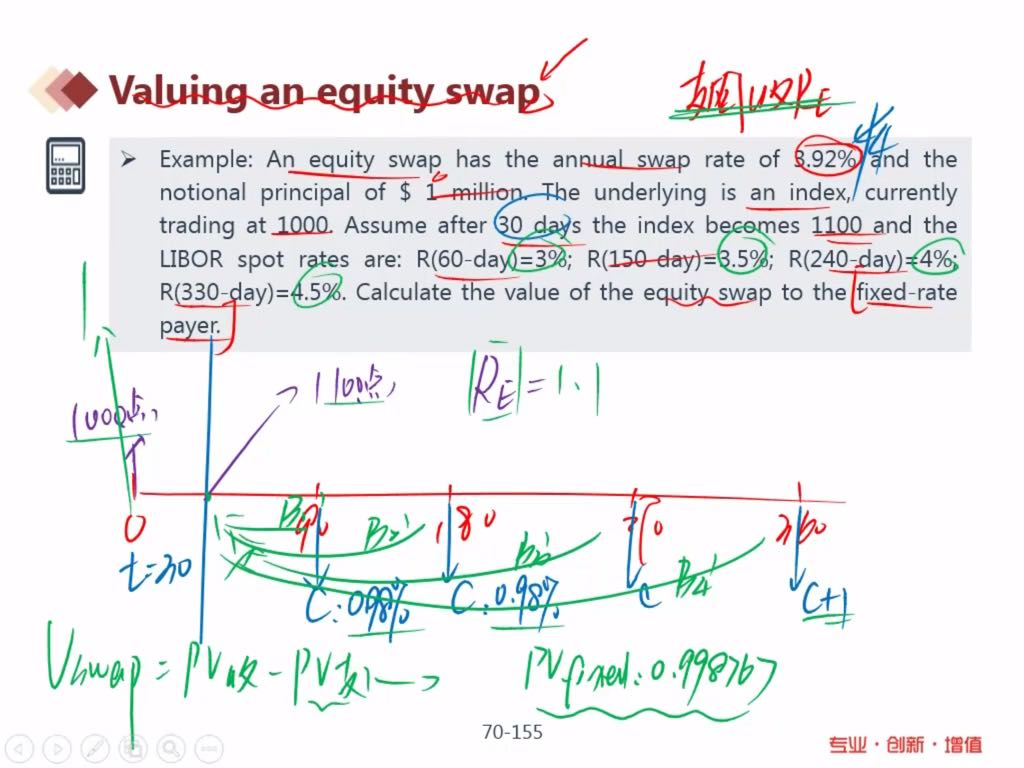 Valuing an equity swap
支固收RE
Example: An equity swap has the annual swap rate of 3.92% and the
notional principal of $ 1 million. The underlying is an index, currently
trading at 1000. Assume after 30 days the index becomes 1100 and the
LIBOR spot rates are: R(60-day)=3%; R(150-day)=3.5%; R(240-day)=4%;
R(330-day)=4.5%. Calculate the value of the equity swap to the fixed-rate
payer.
1100点
RE = 1.1
1000点
B1' B2' B3' B4'
0 90 180 270 360
t=30
C:0.98% C:0.98% C C+1
Vswap = PV收 - PV支
PVfixed:0.998767
70-155
专业·创新·增值